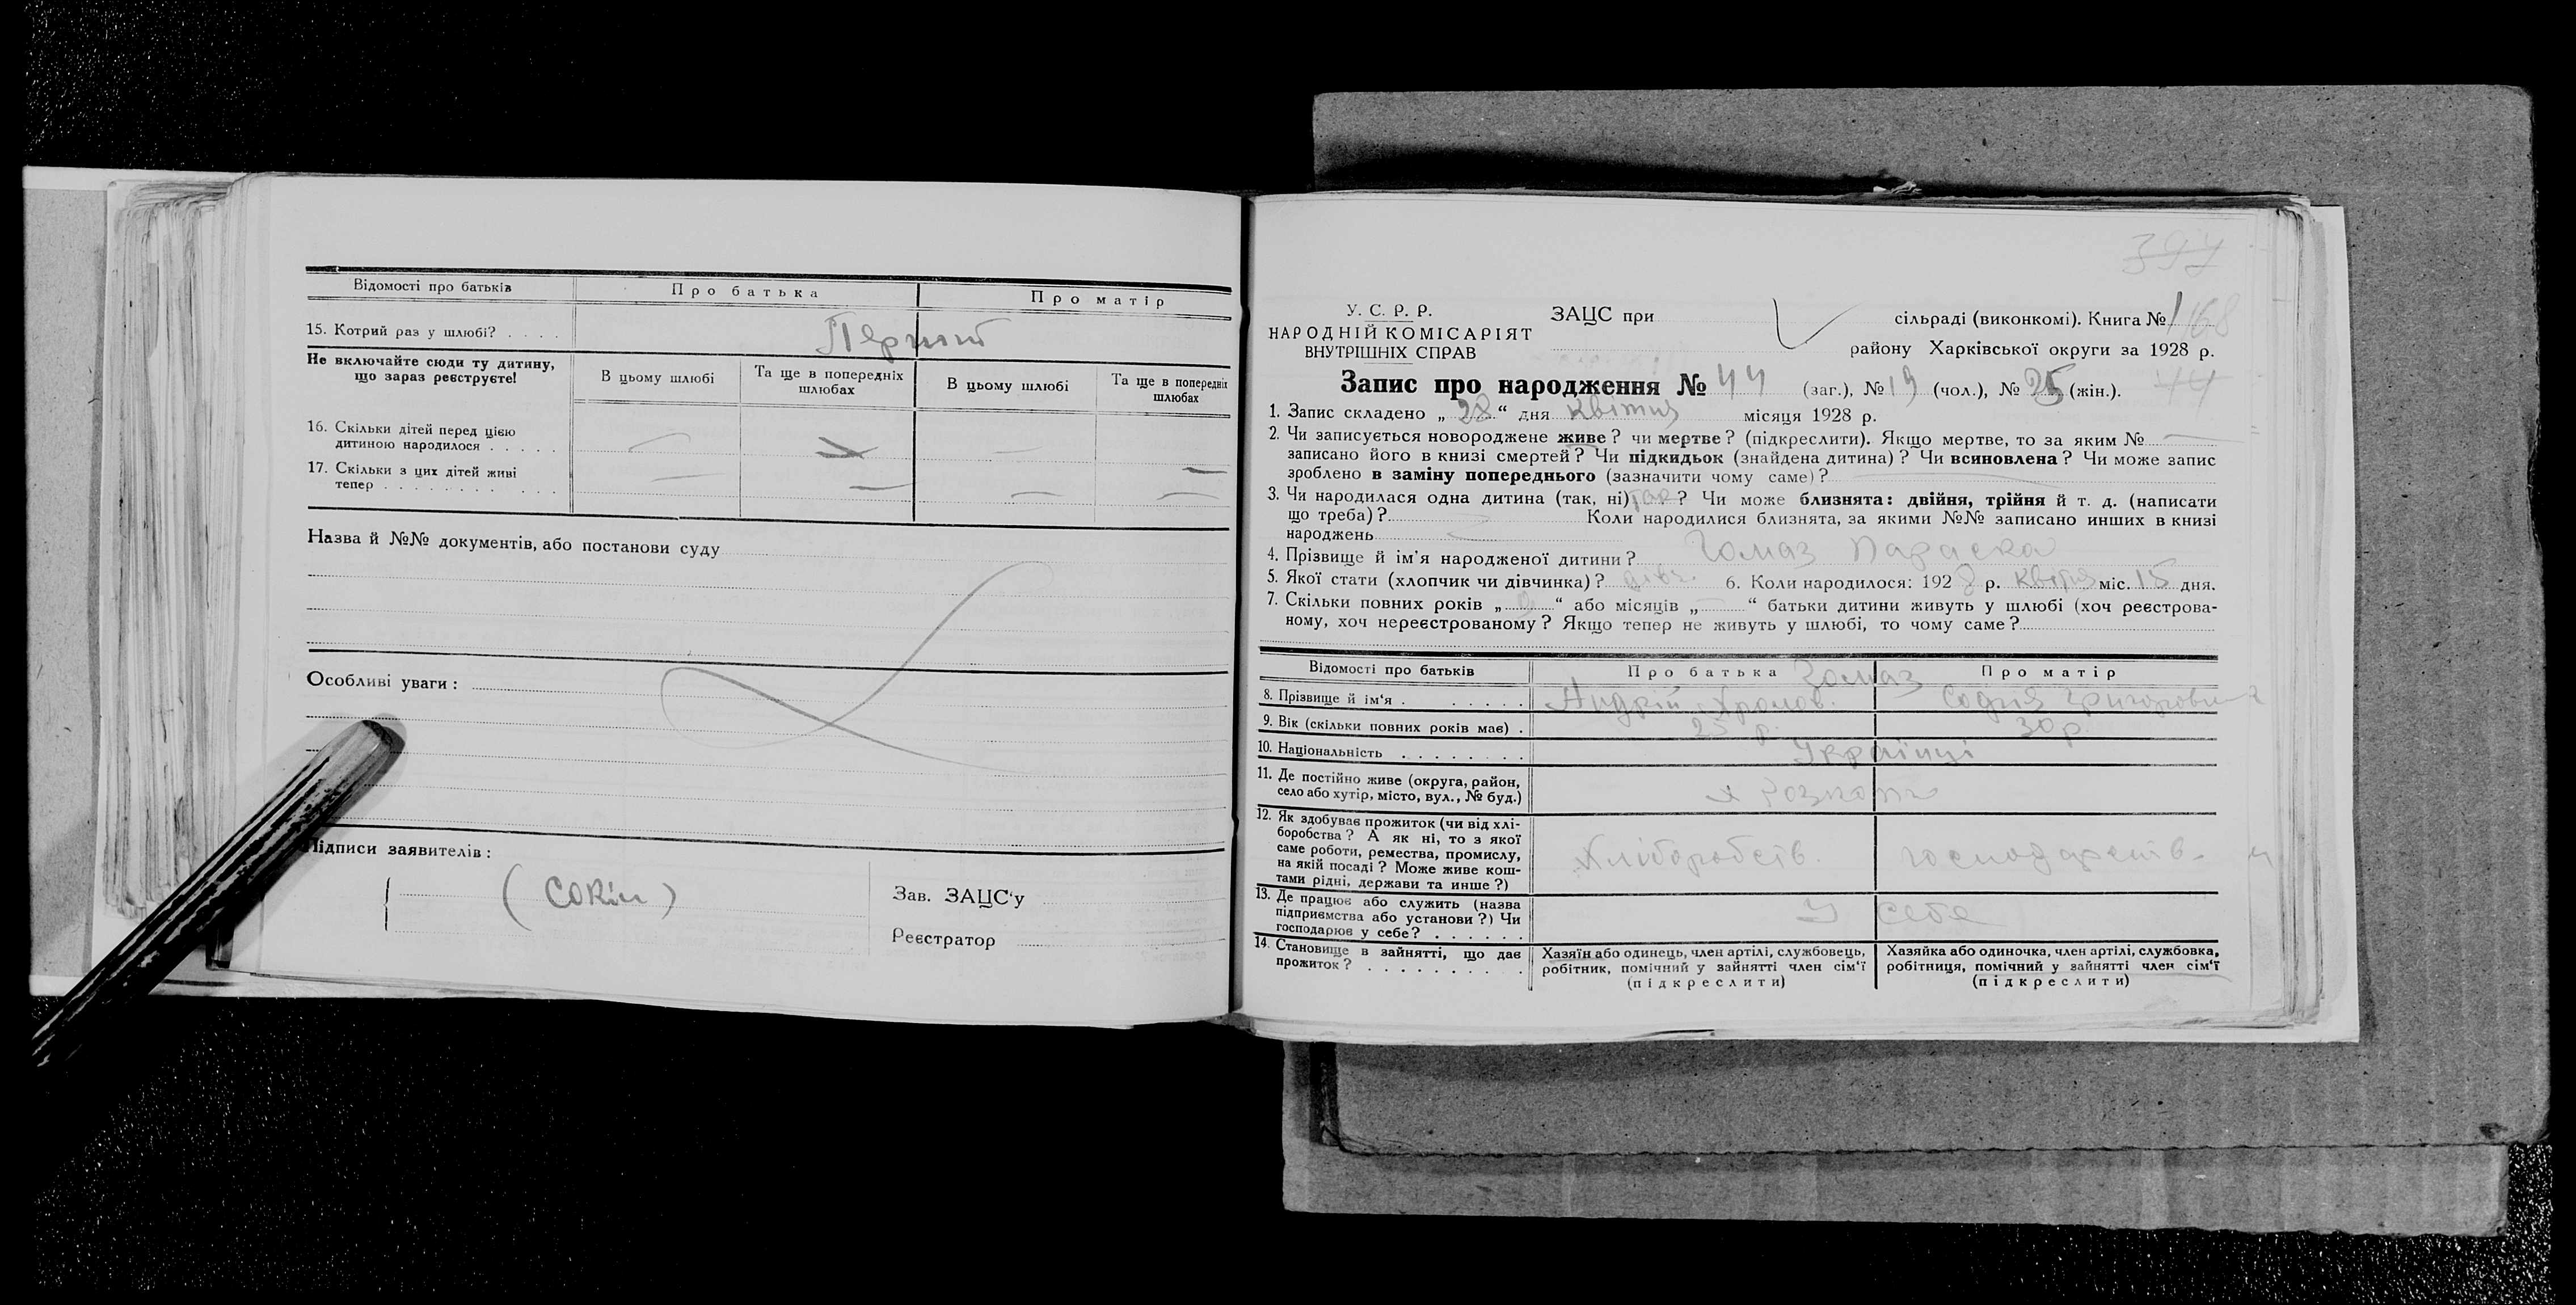 Відомості про батьків
Про батька
Про матір
15. Котрий раз у шлюбі? . . . .
Перший
Не включайте сюди ту дитину, що зараз реєструєте!
В цьому шлюбі
Та ще в попередніх шлюбах
В цьому шлюбі
Та ще в попередніх шлюбах
16. Скільки дітей перед цією
дитиною народилося . . . . .
17. Скільки з цих дітей живі
тепер . . . . . . . . . . .
Назва й №№ документів, або постанови суду
Особливі уваги :
Підписи заявителів :
( Сокіл )
Зав. ЗАЦС'у
Реєстратор
397
У. С. Р. Р.
НАРОДНІЙ КОМІСАРІЯТ
ВНУТРІШНІХ СПРАВ
ЗАЦС при
сільраді (виконкомі). Книга № 1
168
району Харківської округи за 1928 р.
Запис про народження № 44 (заг.), № 19 (чол.), № 25 (жін.). 44
1. Запис складено „ 28 “ дня квітня місяця 1928 р.
2. Чи записується новороджене живе? чи мертве? (підкреслити). Якщо мертве, то за яким №
записано його в книзі смертей? Чи підкидьок (знайдена дитина)? Чи всиновлена? Чи може запис
зроблено в заміну попереднього (зазначити чому саме)?
3. Чи народилася одна дитина (так, ні) так? Чи може близнята: двійня, трійня й т. д. (написати
що треба)? Коли народилися близнята, за якими №№ записано инших в книзі
народжень
4. Прізвище й ім'я народженої дитини? Гомаз Параска
5. Якої стати (хлопчик чи дівчинка)? дівч. 6. Коли народилося: 1928 р. квітня міс. 15 дня.
7. Скільки повних років „ “ або місяців „ “ батьки дитини живуть у шлюбі (хоч реєстрова-
ному, хоч нереєстрованому? Якщо тепер не живуть у шлюбі, то чому саме?
Відомості про батьків
Про батька
Про матір
Гомаз
8. Прізвище й ім'я . . . . . .
Андрій
Софія Григоровна
9. Вік (скільки повних років має) .
23 р.
30 р.
10. Національність . . . . . . . .
Українці
11. Де постійно живе (округа, район,
село або хутір, місто, вул., № буд.)
х
12. Як здобуває прожиток (чи від хлі-
боробства? А як ні, то з якої
саме роботи, ремества, промислу,
на якій посаді? Може живе кош-
тами рідні, держави та инше?)
Хліборобств.
господарств
13. Де працює або служить (назва
підприємства або установи?) Чи
господарює у себе? . . . . . .
У себе
14. Становище в зайнятті, що дає
прожиток? . . . . . . . . . .
Хазяїн або одинець, член артілі, службовець,
робітник, помічний у зайнятті член сім'ї
(підкреслити)
Хазяйка або одиночка, член артілі, службовка,
робітниця, помічний у зайнятті член сім'ї
(підкреслити)